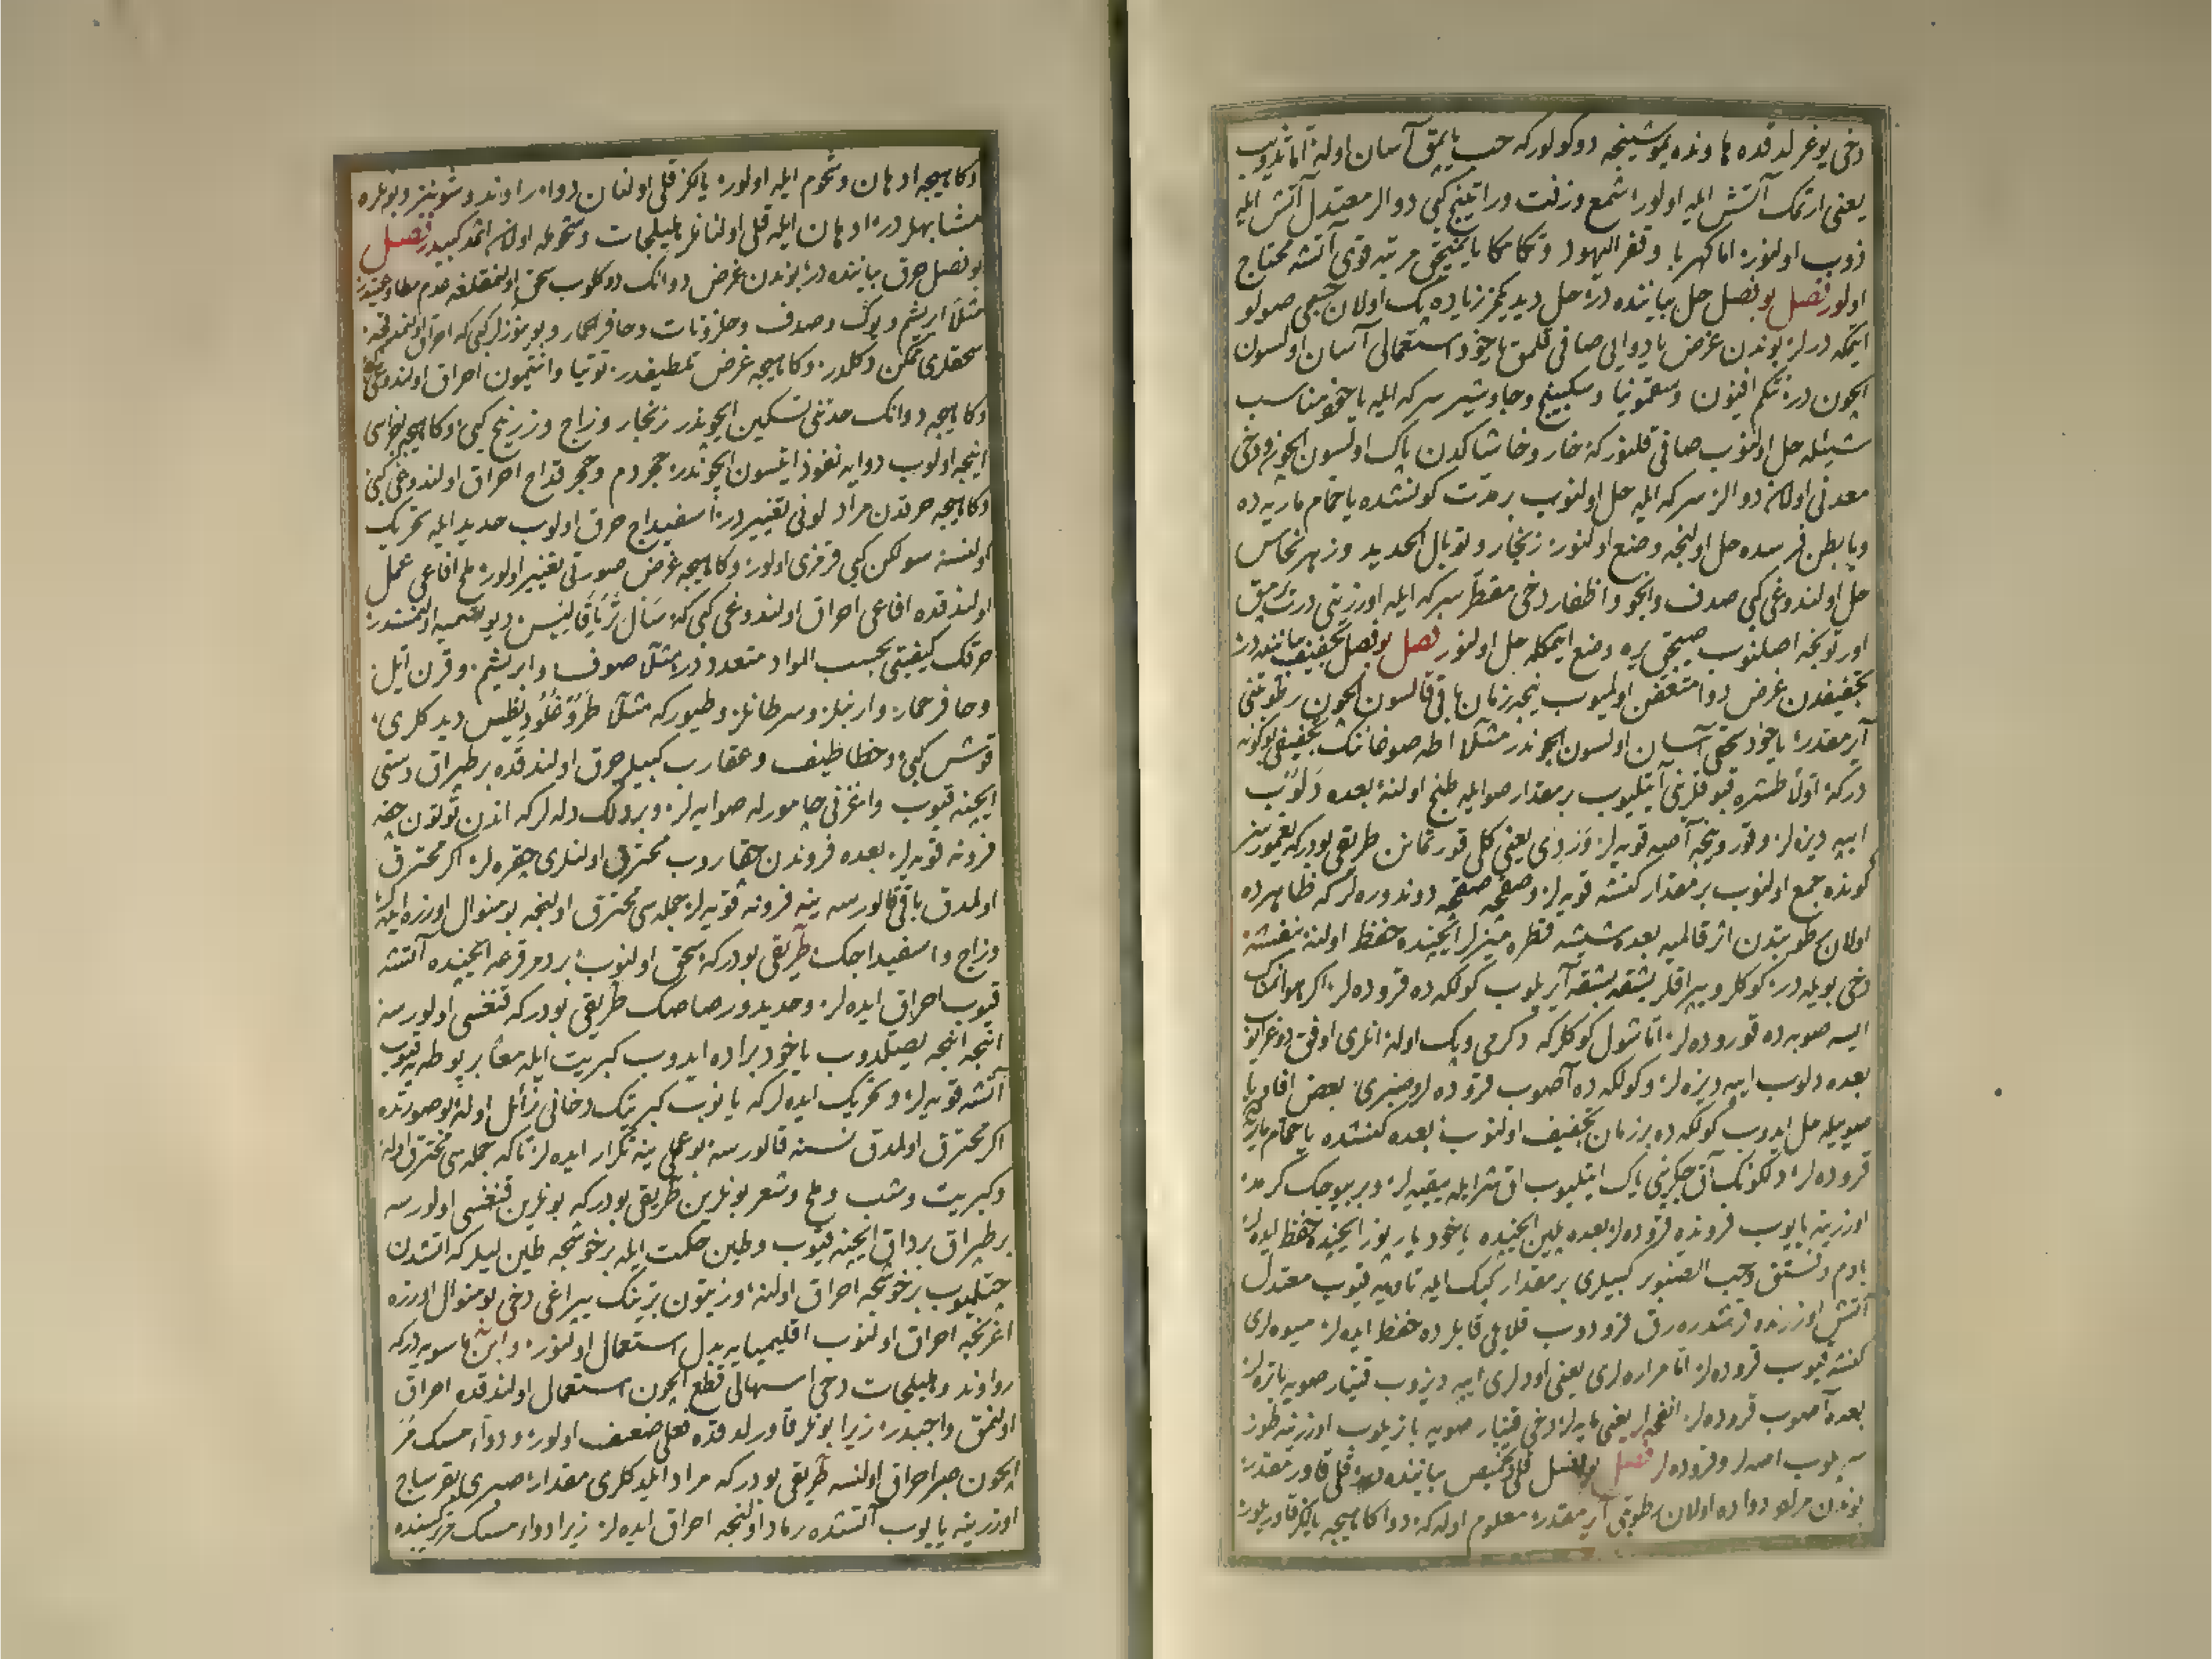 دخی یوغرلدقده هاونده یومشینجه دوکولورکه حب یاپمق آسان اوله اما تذویب
یعنی ارتمک آتش ایله اولور شمع وزفت وراتینج کبی دوالر معتدل آتش ایله
ذوب اولنور اما کهربا وقفر الیهود وکاکا یاپشجی مرتبه قوی آتشه محتاج
اولور فصل بو فصل حل بیاننده در حل دیدیکمز زیاده پک اولان جسمی صولو
ایتمکه درلر بوندن غرض یا دوایی صافی قلمق یاخود استعمالی آسان اولسون
ایچون در نتکم افیون وسقمونیا وسکبینج وجاوشیر سرکه ایله یاخود مناسب
شیئله حل اولنوب صافی قلنورکه خار وخاشاکدن پاک اولسون ایچون ودخی
معدنی اولان دوالر سرکه ایله حل اولنوب بر مدت کونشده یا حمام ماریه ده
ویا بطن فرسده حل اولنجه وضع اولنور زنجار وتوبال الحدید وزهر نحاس
حل اولندوغی کبی صدف وانجو واظفار دخی مقطر سرکه ایله اوزرینی درت پرمق
اورتونجه اصلنوب صیجق یره وضع ایتمکله حل اولنور فصل بو فصل تجفیف بیاننده در
تجفیفدن غرض دوا متعفن اولمیوب نیجه زمان باقی قالسون ایچون رطوبتنی
آیرمقدر یاخود سحقی آسان اولسون ایچوندر مثلا اطه صوغاننک تجفیفی بو کونه
درکه اولا طشره قبوقلرینی آیقلیوب بر مقدار صوایله طبخ اولنه بعده دلوب
ایپه دیزلر وقوروینجه آصه قویه لر وزردی یعنی کل قورتمانن طریقی بودرکه یغمورسز
کونده جمع اولنوب بر مقدار کنشه قویه لر وصفحه صفحه دوندوره لر که ظاهرده
اولان رطوبتدن اثر قالمیه بعده شیشه قطره میزلر ایچنده حفظ اولنه بنفشه
دخی بویله در کوکلر ویپراقلر بشقه بشقه آیریلوب کولکه ده قروده لر اکر هوا نمناک
ایسه صوبه ده قوروده لر اما شول کوکلرکه دکرمی وپک اوله انلری اوفق دوغرایوب
بعده دلوب ایپه دیزه لر وکولکه ده آصوب قروده لر وصبری بعض افاویا
صوییله حل ایدوب کولکه ده بر زمان تجفیف اولنوب بعده کنشده یا حمام ماریه ده
قروده لر دلکونک آق جکرینی پاک ایتلیوب اق شرابله ییقیه لر وبر بیوجک کرمد
اوزرینه یایوب فرونده قروده لر بعده پلین ایچنده یاخود یارپوز ایچنده حفظ ایده لر
بادم وفستق وحب الصنوبر کبیلری بر مقدار کپک ایله تاوه یه قیوب معتدل
آتش اوزرنده قرشدره رق قرودوب قلایلی قابلرده حفظ ایده لر میوه لری
کنشه قیوب قروده لر اما مراره لری یعنی اودلری ایپه دیزوب قینار صویه باتره لر
بعده آصوب قروده لر انفحه لر یعنی مایه لر دخی قینار صویه یازیلوب اوزرینه طوز
سپیلوب اصه لر وقروده لر فصل بو فصل قلی وتحمیص بیاننده در قلی قاورمقدر
بوندن مراد دواده اولان رطوبتی آیرمقدر معلوم اوله که دوا کاهیجه یالکز قاوریلور
وکاهیجه ادهان وشحوم ایله اولور یالکز قلی اولنان دواء راوند وشونیز وبونلره
مشابهلردر ادهان ایله قلی اولنانلر هلیلجات وشحومله اولان اثمد کبیدر فصل
بو فصل حرق بیاننده در بوندن غرض دوانک دوکلوب سحق اولنمقلغه عدم مطاوعتیدر
مثلا ابریشم ویوک وصدف وحلزونات وحافر الحمار وبوینوزلر کبی که احراق اولنمدقجه
سحقلری ممکن دکلدر وکاهیجه غرض تلطیفدر توتیا وانتیمون احراق اولندوغی کبی
وکاهیجه دوانک حدتنی تسکین ایچوندر زنجار وزاج وزرنیخ کبی وکاهیجه اجزاسی
اینجه اولوب دوایه نفوذ ایتسون ایچوندر حجر دم وحجر قداح احراق اولندوغی کبی
وکاهیجه حرقدن مراد لونی تغییردر اسفیداج حرق اولوب حدید ایله تحریک
اولنسه سولکن کبی قرمزی اولور وکاهیجه غرض صورتی تغییر اولور ملح افاعی عمل
اولندقده افاعی احراق اولندوغی کبی که سال ثریاقالیس دیو تسمیه اولنمشدر
حرقک کیفیتی بحسب المواد متعدددر مثلا صوف وابریشم وقرن ایل
وحافر حمار وارنبلر وسرطانلر وطیورکه مثلا طروغلودیطیس دیدکلری
قوش کبی وخطاطیف وعقارب کبیلر حرق اولندقده بر طپراق دستی
ایچنه قیوب واغزنی چامورله صوایه لر وبر دلک دله لر که اندن توتون چقه
فرونه قویه لر بعده فروندن چقاروب محترق اولنلری چقره لر اکر محترق
اولمدق باقی قالورسه ینه فرونه قویه لر جمله سی محترق اولنجه بو منوال اوزره ایده لر
وزاج واسفیداجک طریقی بودرکه سحق اولنوب بر دمر قرعه ایچنده آتشه
قیوب احراق ایده لر وحدید ورصاصک طریقی بودرکه قنغیسی اولورسه
اینجه اینجه یصیلدوب یاخود براده ایدوب کبریت ایله معا بر پوطه یه قیوب
آتشه قویه لر وتحریک ایده لر که یانوب کبریتک دخانی زائل اوله بو صورتده
اکر محترق اولمدق نسنه قالورسه بو عملی ینه تکرار ایده لر تاکه جمله سی محترق اوله
وکبریت وشب وملح وشعر بونلرین طریقی بودرکه بونلرین قنغیسی اولورسه
بر طپراق برداق ایچنه قیوب وطین حکمت ایله بر خوشجه طین لیلر که آتشدن
چتلمیوب بر خوشجه احراق اولنه وزیتون بریننک یپراغی دخی بو منوال اوزره
اغریجه احراق اولنوب اقلیمیایه بدل استعمال اولنور وابن ماسویه درکه
راوند وهلیلجات دخی اسهالی قطع ایچون استعمال اولندقده احراق
اولنمق واجبدر زیرا بونلر قاورلدقده فعلی ضعیف اولور ودواء مسک مر
ایچون صبر احراق اولنسه طریقی بودرکه مراد ایلدکلری مقدار صبری بقر ساج
اوزرینه یایوب آتشده رماد اولنجه احراق ایده لر زیرا دواء مسک مر ترکیبنده